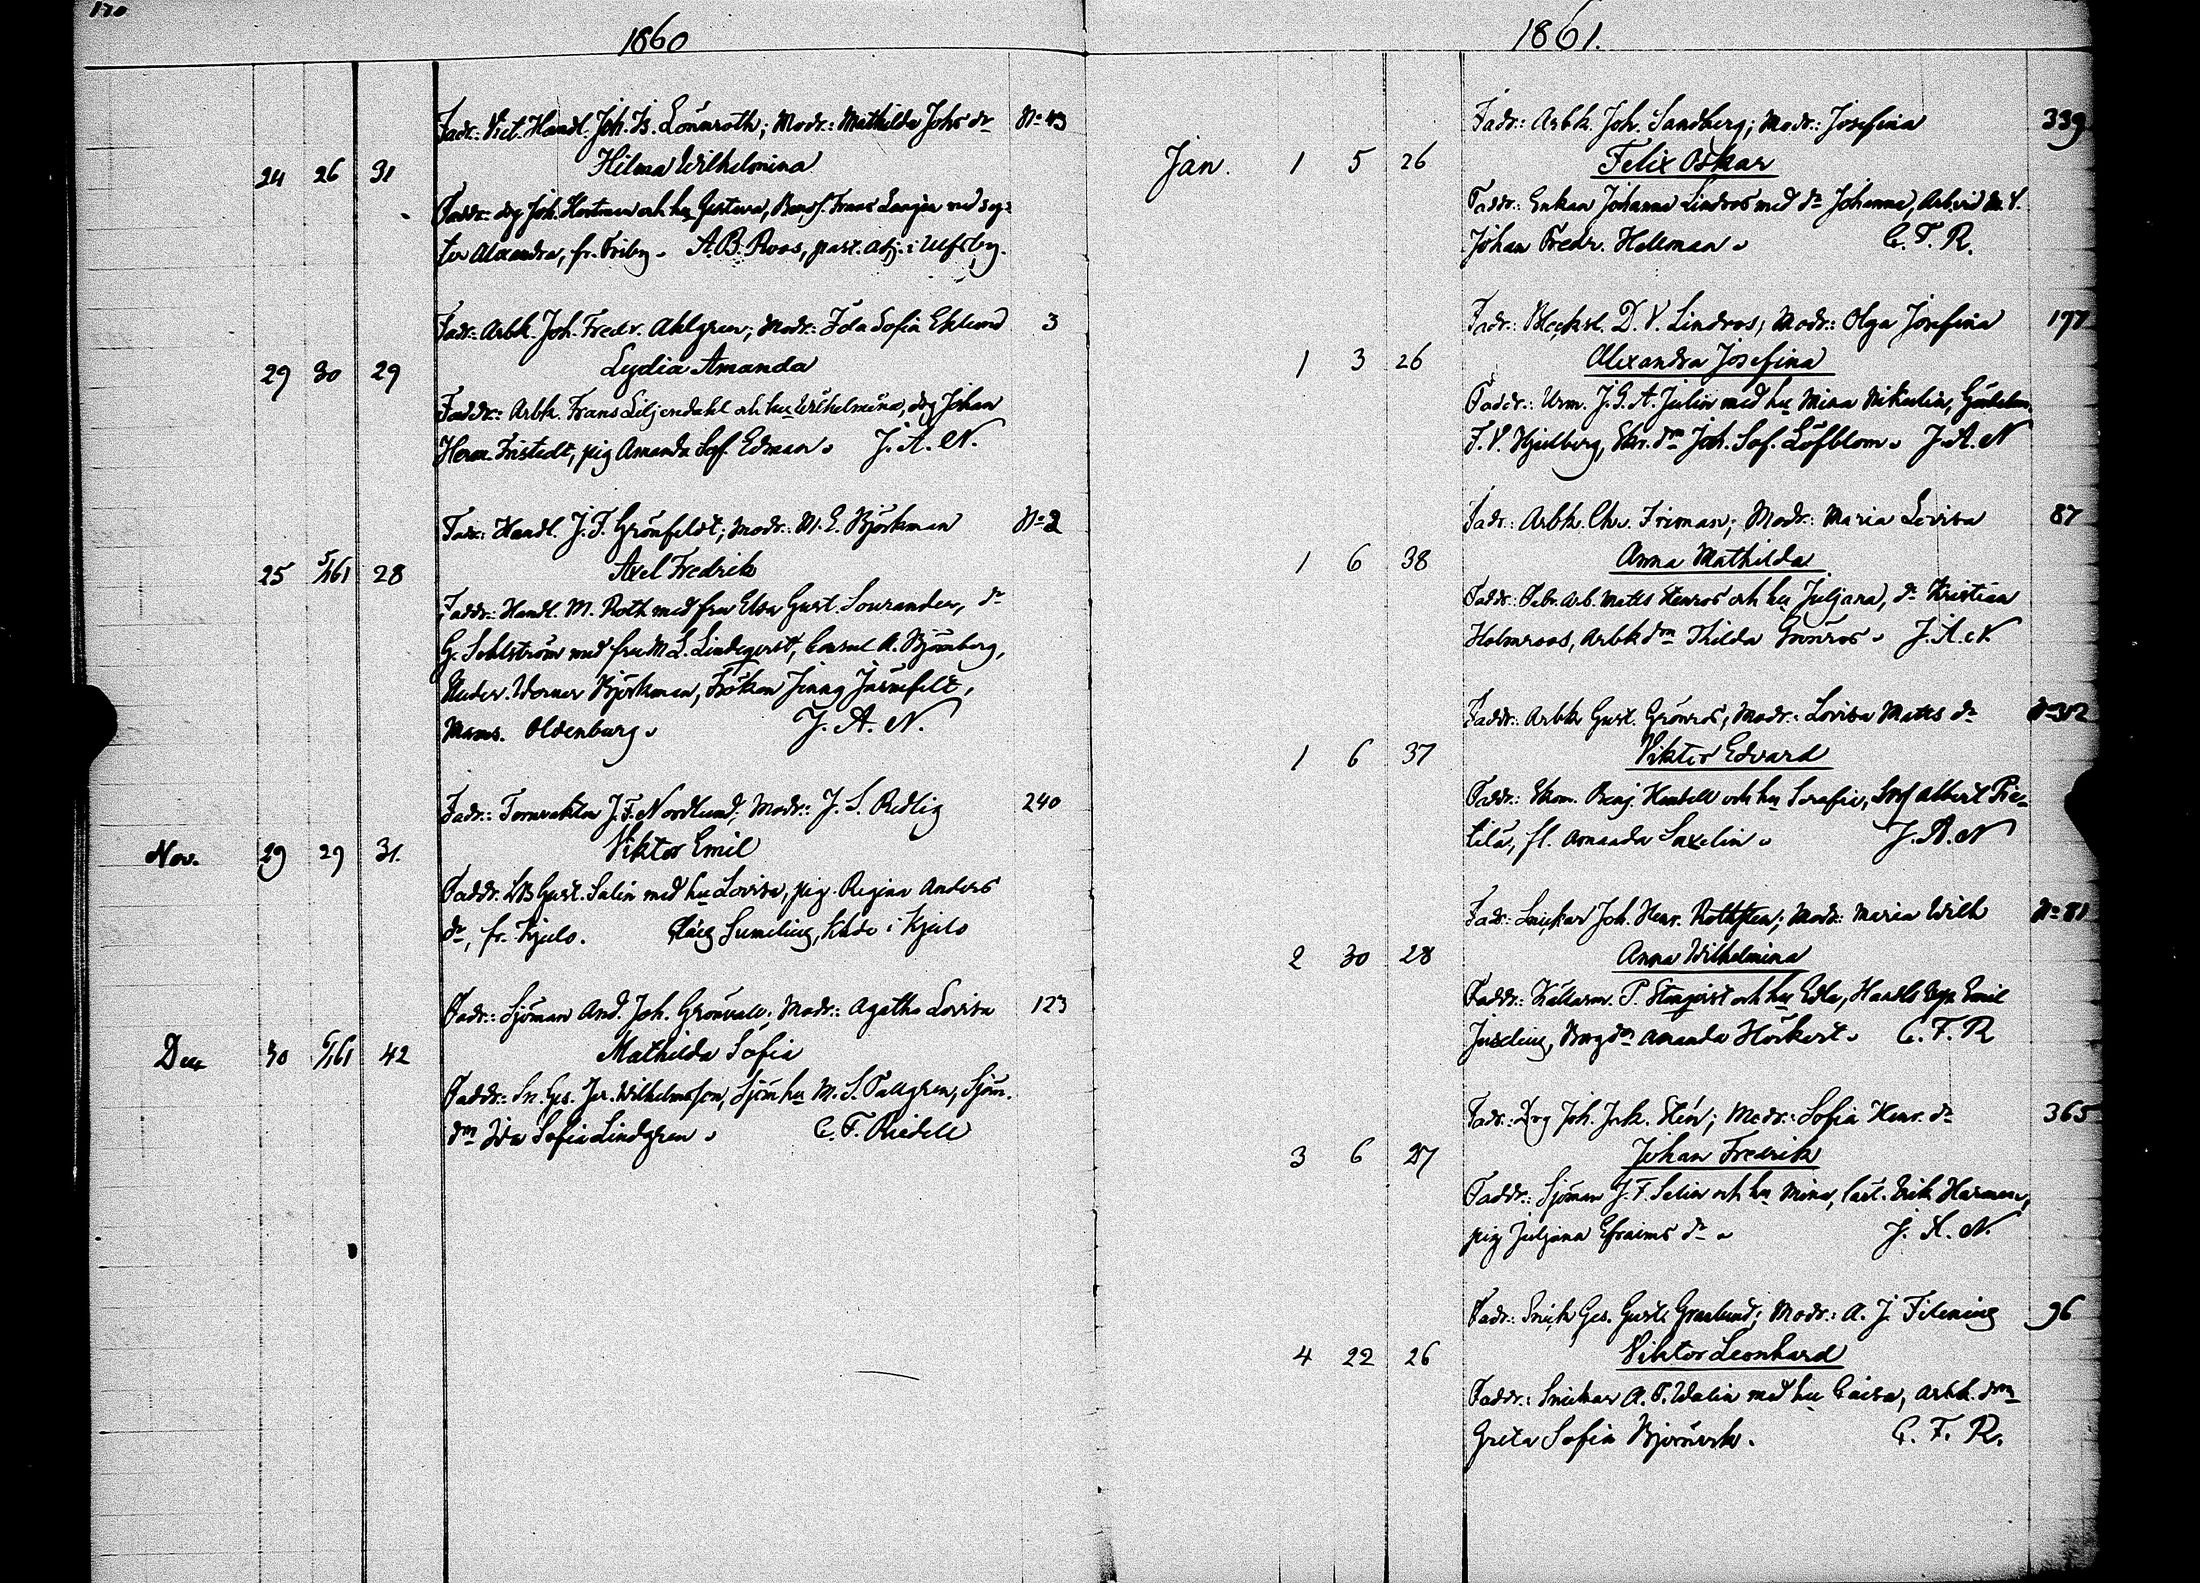 170
1860
Fadr.: Vict. Handl. Joh. Is. Lönnroth; Modr.: Mathilda Johs dr No 43
24 26 31 Hilma Wilhelmina
Faddr.: drg Joh. Hortman och hu Gustava, Frans med sys-
ter Alexandra, fr. Friby. A. B. Roos, past. adj. i Ulfsby.
Fadr.: Arbk. Joh. Fredr. Ahlgren; Modr.: Ida Sofia Eklund 3
29 30 29 Lydia Amanda
Faddr.: Arbk. Frans Liljendahl och hu Wilhelmina, drg Johan
Herm. Fristedt, pig Amanda Sof. Edman. J. A. N.
Fadr.: Handl. J. F. Grönfeldt; Modr.: M. E. Björkman No 2
25 5/1 61 28 Axel Fredrik
Faddr.: Handl. M. Roth med fru Elsa Gust. Sourander, do
G. Sohlström med fru M. L. Lindeqvist, Consul A. Björnberg,
Studer. Werner Björkman, Fröken Jenny Järnefelt,
Mams. Oldenburg. J. A. N.
Fadr.: Tornväktar J. F. Nordlund; Modr.: J. S. Redlig 240
Nov. 29 29 31. Viktor Emil
Faddr. Gust. Salin med hu Lovisa, pig. Regina Anders
dr, fr. Kjulo. i Kjulo
Fadr.: Sjöman And. Joh. Grönvall; Modr.: Agatha Lovisa 123
Dec 30 6/1 61 42 Mathilda Sofia
Faddr.: Sn. Ges. Jer. Wilhelmsson, Sjöm hu M. S. Tallgren, Sjöm.
dm Ida Sofia Lindgren. C. F. Riedell
1861.
Fadr.: Arbk. Joh. Sandberg; Modr.: Josefina 339
Jan. 1 5 26 Felix Oskar
Faddr.: Enkan Johanna Lindros med dr Johanna,
Johan Fredr. Hellman. C. F. R.
Fadr.: Blecksl. D. V. Lindros; Modr.: Olga Josefina 197
1 3 26 Alexandra Josefina
Faddr.: Urm. J. G. A. Julin med hu Mina Nikulin,
F. V. Hjelberg, Skr. dm Joh. Sof. Löfblom. J. A. N
Fadr.: Arbk. Chr. Friman; Modr.: Maria Lovisa 87
1 6 38 Anna Mathilda
Faddr.: Arb. Matts Stenros och hu Juljana, do Kristian
Holmroos, Arbk dm Thilda Grönros. J. A. N.
Fadr.: Arbk Gust. Grönros; Modr.: Lovisa Matts dr No 312
1 6 37 Viktor Edvard
Faddr.: Skom. Benj. Hendell och hu Serafia, Albert Pie-
tilä, fl. Amanda Saxelin. J. A. N
Fadr.: Snickar Joh. Henr. Rothsten; Modr.: Maria Wilh No 81
2 30 28 Anna Wilhelmina
Faddr.: Källarm. P. Stenqvist och hu Edla, Handls Emil
Juselius, Borg dm Amanda Hörkert. C. F. R
Fadr.: Drg Joh. Sten; Modr.: Sofia Henr. dr 365
3 6 27 Johan Fredrik
Faddr.: Sjöman J. F. Selin och hu Mina, Erik Harman,
pig Juljana Efraims dr. J. A. N.
Fadr.: Snick Ges. Gust. Granlund; Modr.: A. J. Filenius 96
4 22 26 Viktor Leonhard
Faddr.: Snickar A. F. Walin med hu Caisa, Arbk. dm
Greta Sofia Björnvik. C. F. R.